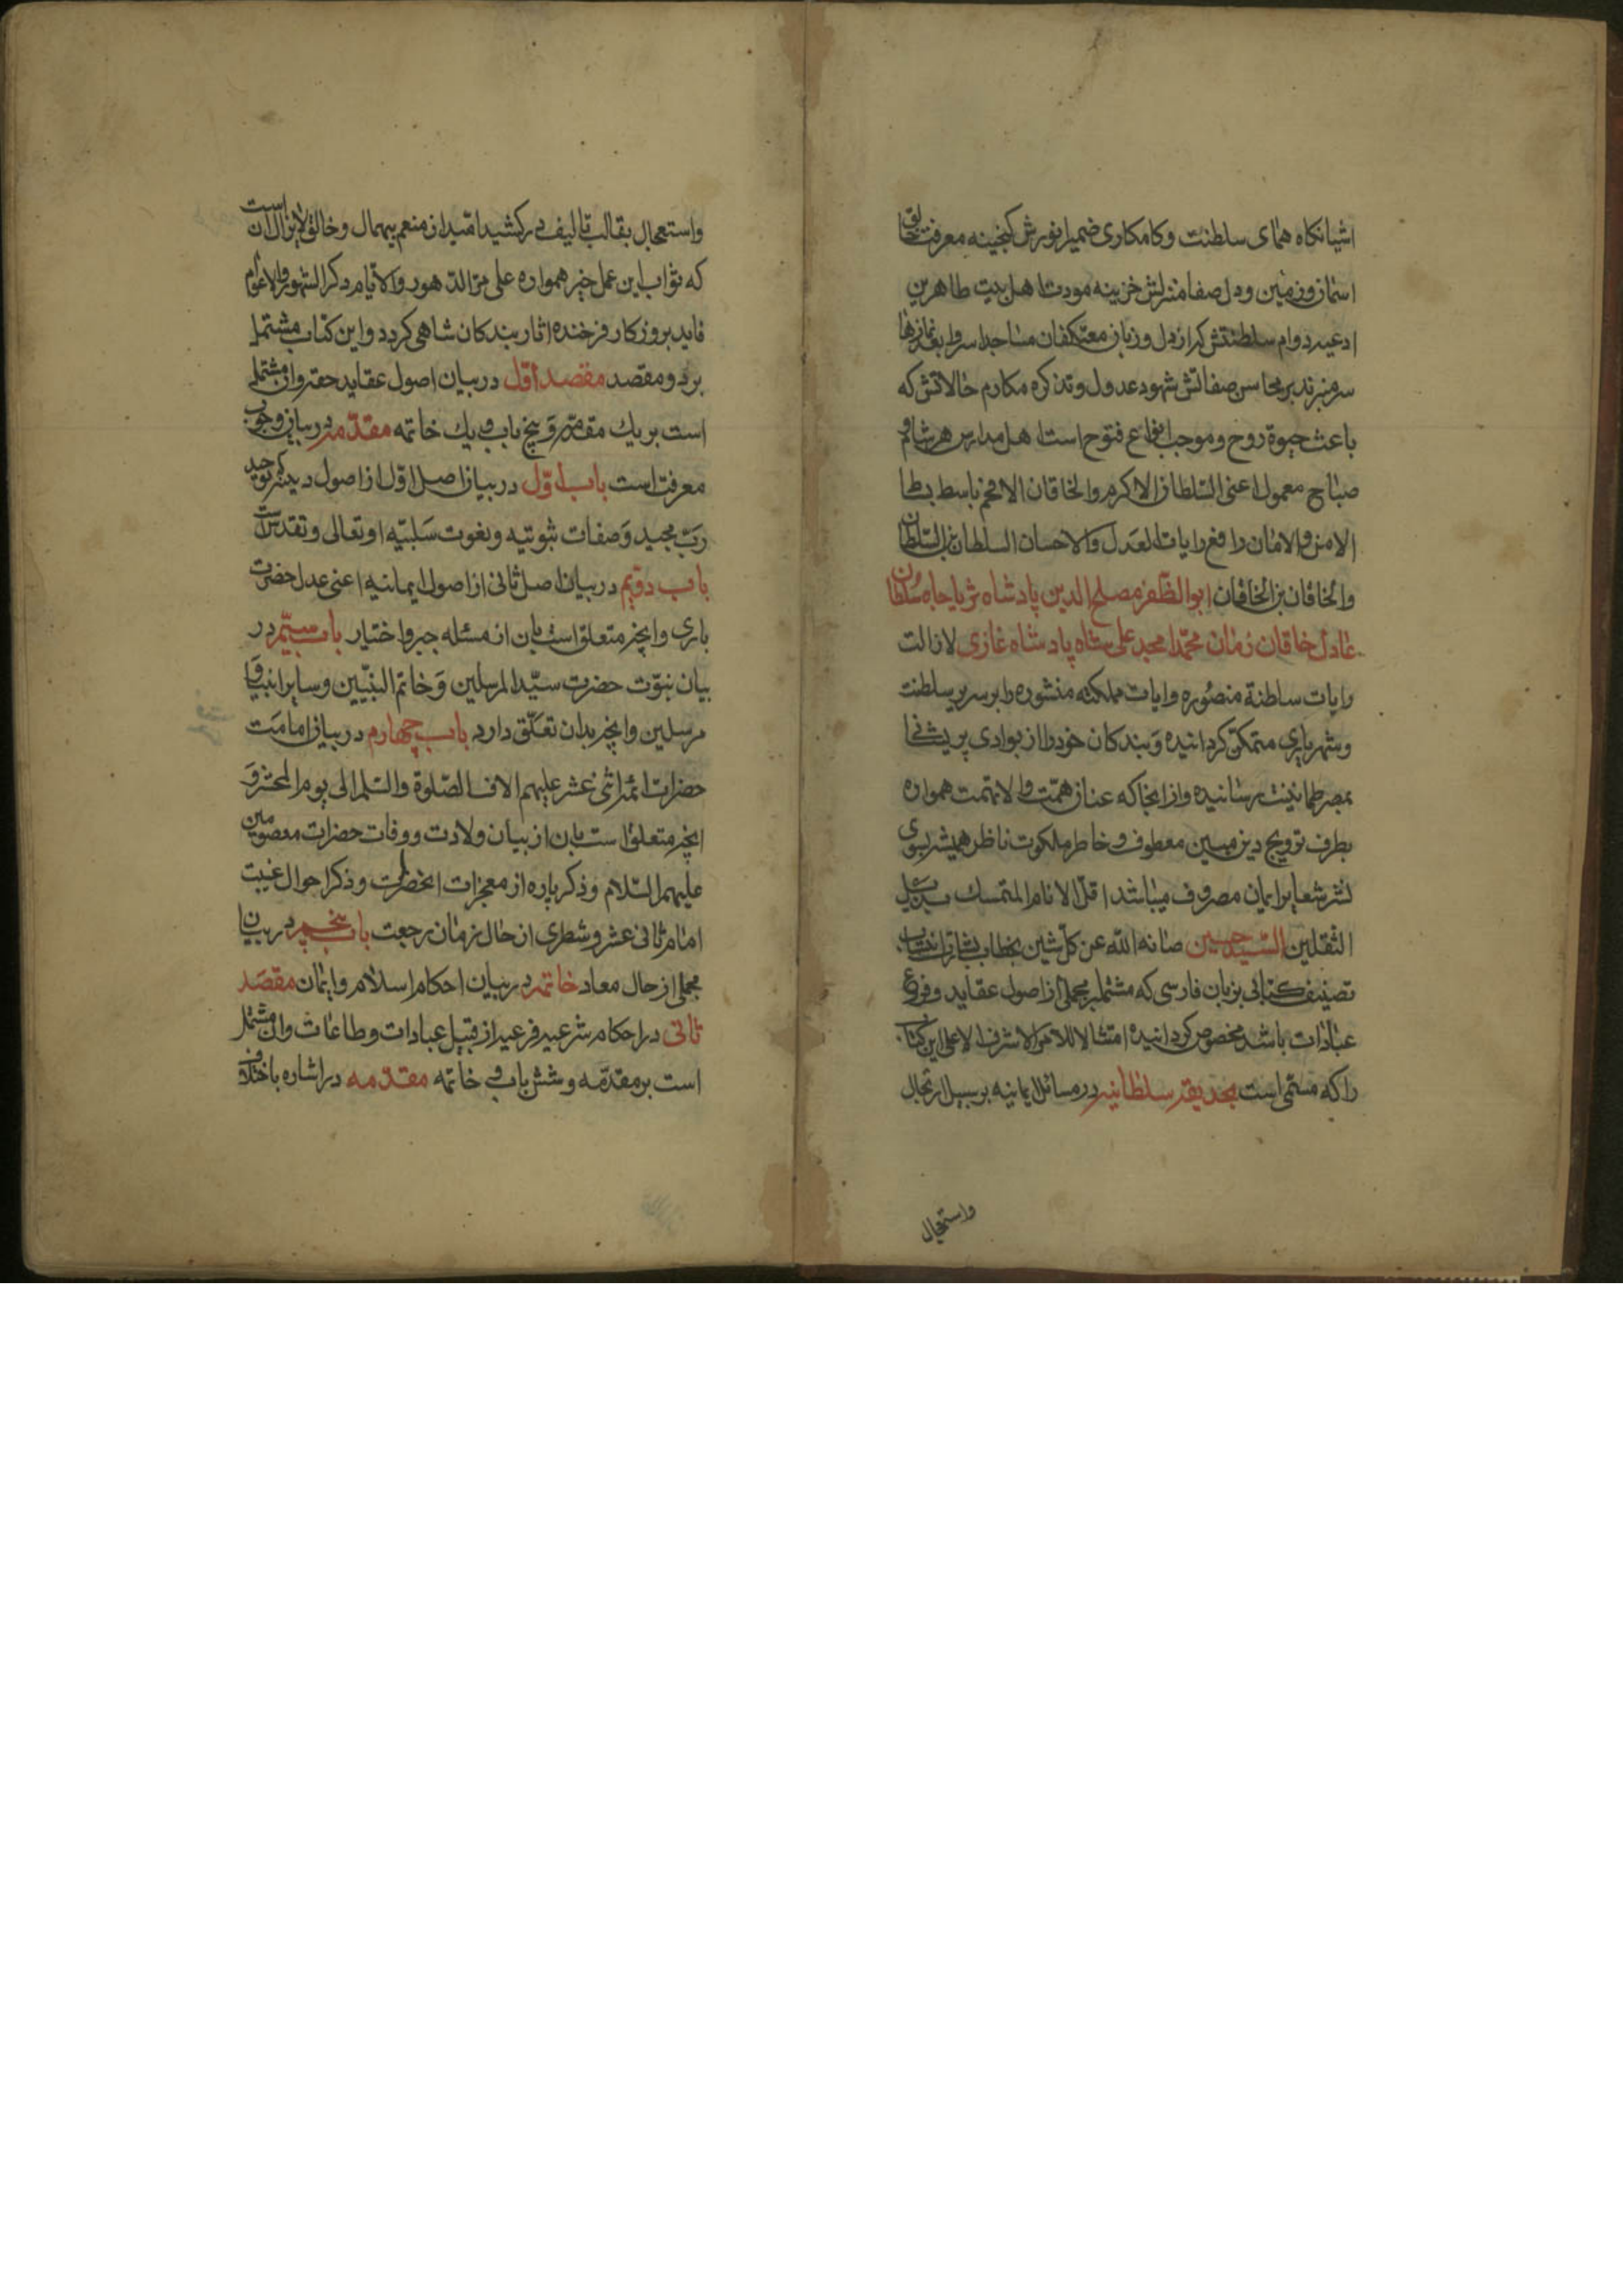 اشیانکاه همای سلطنت وکامکاری ضمیر انورش کنجینه معرفت خالق
اسمان وزمین ودل صفا منزلش خزینه مودت اهل بیت طاهرین
ادعیه دوام سلطنتش که از دل وزبان معتکفان مساجد اسر وا بعد نمازها
سر منبر ند بر محاسن صفاتش شهود عدول وتذکره مکارم حالاتش که
باعث حیوة روح وموجب انواع فتوح است اهل مدارس هر شام و
صباح معمول اعنی السلطان الاکرم والخاقان الافخم باسط بساط
الامن والامان رافع رایات العدل والاحسان السلطان بن السلطان
والخاقان بن الخاقان ابوالظفر مصلح الدین پادشاه ثریا جاه سلطان
عادل خاقان زمان محمد امجد علی شاه پادشاه غازی لازالت
رایات سلطنة منصوره وایات مملکته منشوره را بر سریر سلطنت
وشهریاری متمکن کردانیده وبندکان خود را از بوادی پریشانی
بمصر طمانینت رسانیده وازانجا که عنان همت والا نهمت همواره
بطرف ترویج دین مبین معطوف وخاطر ملکوت ناظر همیشه بسوی
نشر شعایر ایمان مصروف میباشد اقل الانام المتمسک بذیل
الثقلین السید حسین صانه الله عن کل شین بخطاب بشارت انتساب
تصنیف کتابی بزبان فارسی که مشتمل بر مجملی از اصول عقاید وفروع
عبادات باشد مخصوص کردانیده امتثالا للامر الاشرف الاعلی این کتاب
را که مسمی است بحدیقه سلطانیه در مسائل ایمانیه بر سبیل ارتجال
واستعجال
واستعجال بقالب تالیف در کشید امید از منعم بیهمال وخالق لایزال انست
که ثواب این عمل خیر همواره علی مر الدهور والایام وکر الشهور والاعوام
عاید بروزکار فرخنده اثار بندکان شاهی کردد واین کتاب مشتمل
بر دو مقصد مقصد اول در بیان اصول عقاید حقه وان مشتمل
است بر یک مقدمه وپنج باب ویک خاتمه مقدمه در بیان وجوب
معرفت است باب اول در بیان اصل اول از اصول دینیه که توحید
رب مجید وصفات ثبوتیه ونعوت سلبیه او تعالی وتقدس است
باب دویم در بیان اصل ثانی از اصول ایمانیه اعنی عدل حضرت
باری وانچه متعلق است بان از مسئله جبر واختیار باب سیم در
بیان نبوت حضرت سید المرسلین وخاتم النبیین وسایر انبیا و
مرسلین وانچه بدان تعلق دارد باب چهارم در بیان امامت
حضرات ائمه اثنی عشر علیهم الاف الصلوة والسلم الی یوم المحشر و
انچه متعلق است بان از بیان ولادت ووفات حضرات معصومین
علیهم السلام وذکر پاره از معجزات انحضرات وذکر احوال غیبت
امام ثانی عشر وشطری از حال زمان رجعت باب پنجم در بیان
مجملی از حال معاد خاتمه در بیان احکام اسلام وایمان مقصد
ثانی در احکام شرعیه فرعیه از قبیل عبادات وطاعات وان مشتمل
است بر مقدمه وشش باب وخاتمه مقدمه در اشاره باختلاف